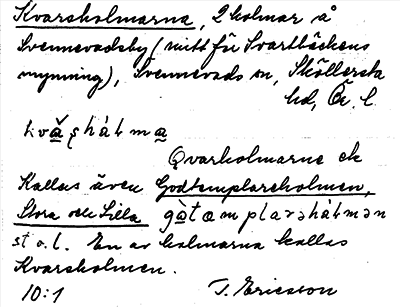 Kvarsholmarna, 2 holmar å
Svennevadsby (mitt för Svartbäckens
mynning), Svennevads sn, Sköllersta
hd, Ör. l.
Qvarholmarne ek
Kallas även Godtemplareholmen,
Stora och Lilla
st o.l. En av holmarna kallas
Kvarsholmen.
10:1 T. Ericsson